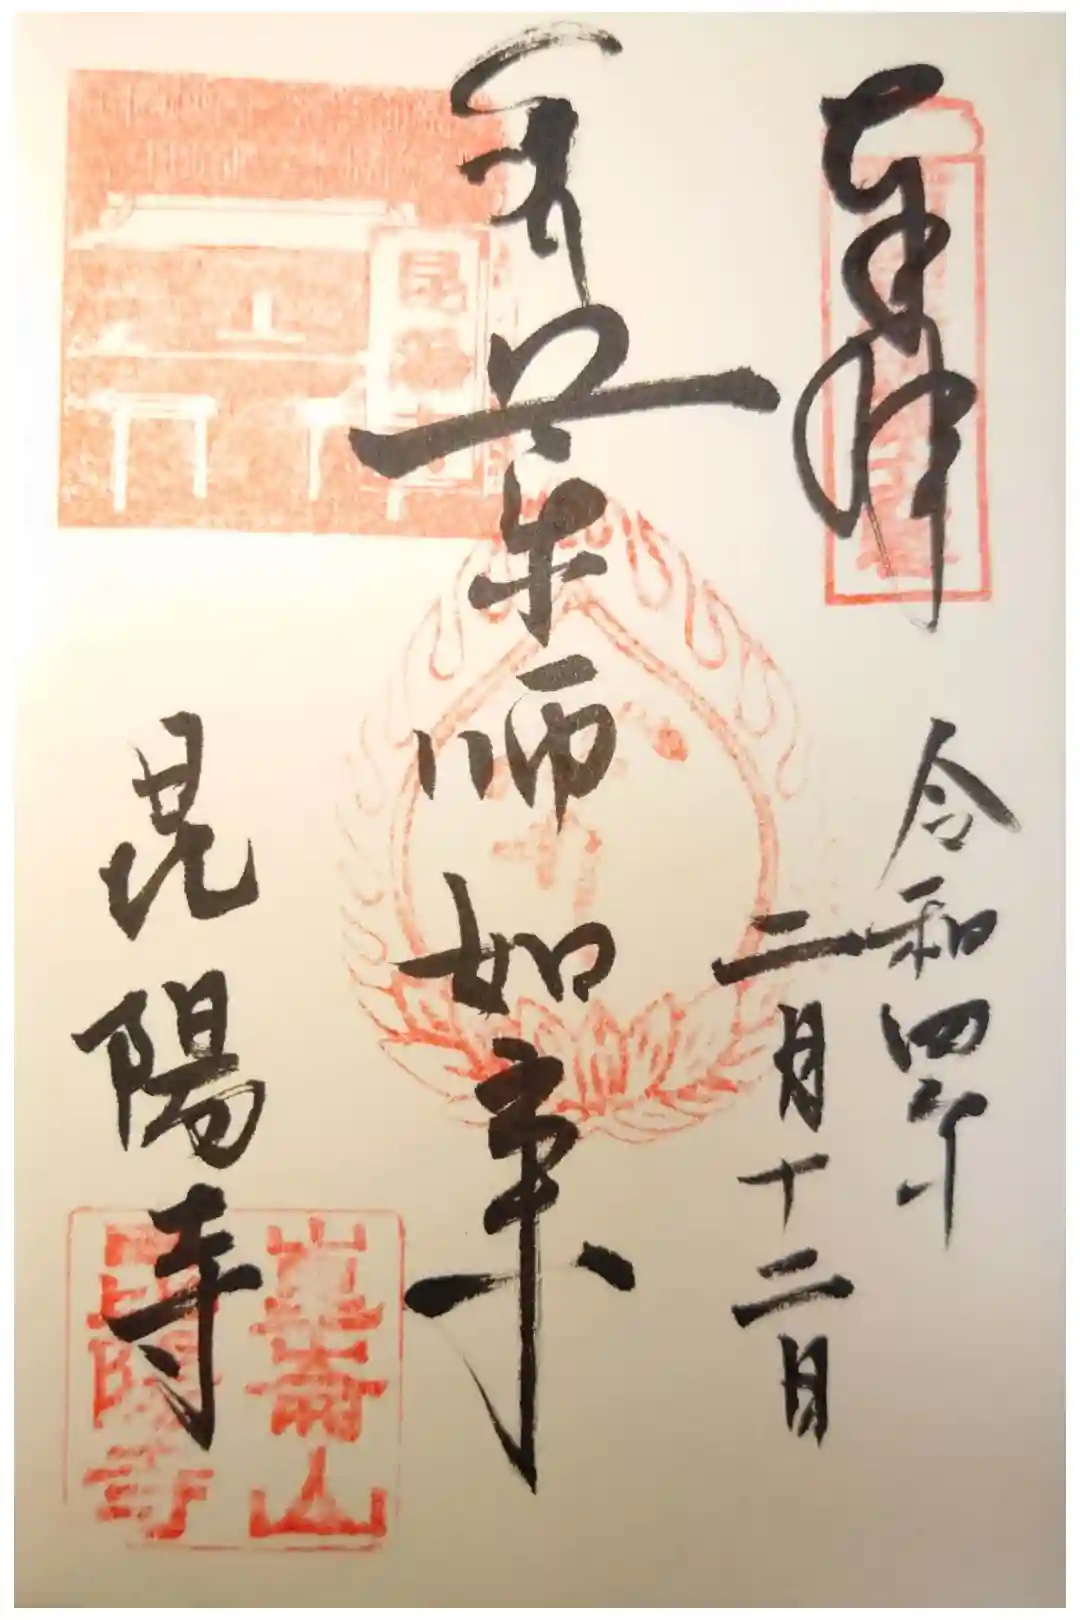 奉拝
令和四年
二月十二日
薬師如来
昆陽寺
昆陽寺
崑崙山
昆陽寺